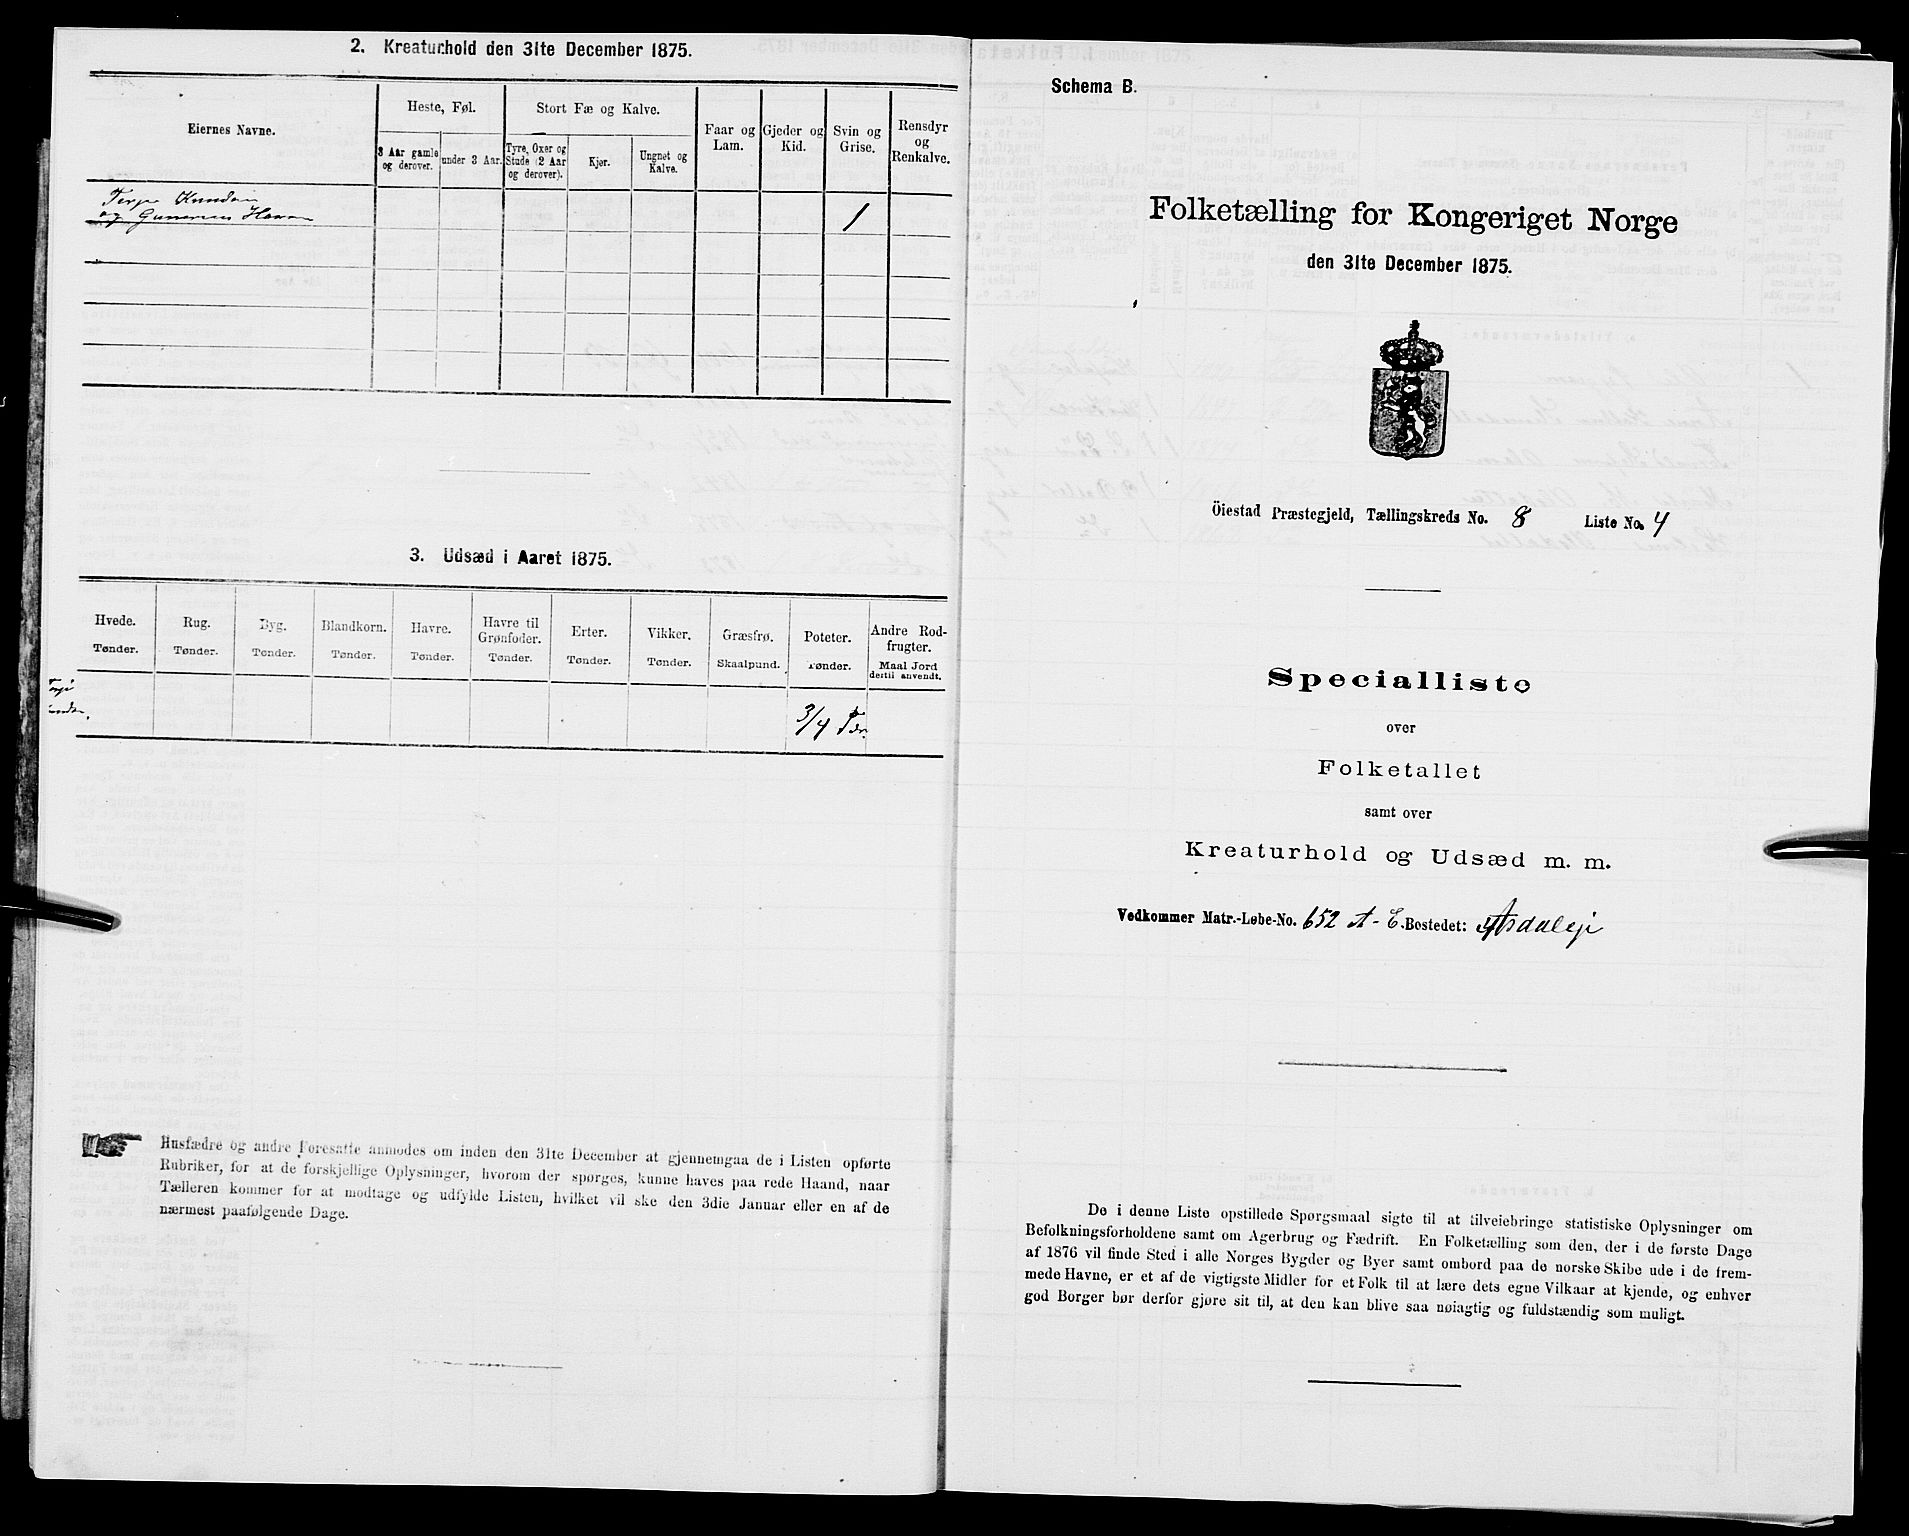 2. Kreaturhold den 31te December 1875.
Eiernes Navne.
Heste, Føl.
3 Aar gamle og derover.
under 3 Aar.
Stort Fæ og Kalve.
Tyre, Oxer og Stude (2 Aar og derover).
Kjør.
Ungnet og Kalve.
Faar og Lam.
Gjeder og Kid.
Svin og Grise.
Rensdyr og Renkalve.
Terje Knudsen
og Gunerius
1
3. Udsæd i Aaret 1875.
Hvede. Tønder.
Rug. Tønder.
Byg. Tønder.
Blandkorn. Tønder.
Havre. Tønder.
Havre til Grønfoder. Tønder.
Erter. Tønder.
Vikker. Tønder.
Græsfrø. Skaalpund.
Poteter. Tønder.
Andre Rod-frugter. Maal Jord dertil anvendt.
3/4 Tdr.
Husfædre og andre Foresatte anmodes om inden den 31te December at gjennemgaa de i Listen opførte
Rubriker, for at de forskjellige Oplysninger, hvorom der spørges, kunne haves paa rede Haand, naar
Tælleren kommer for at modtage og udfylde Listen, hvilket vil ske den 3die Januar eller en af de
nærmest paafølgende Dage.
Schema B.
Folketælling for Kongeriget Norge
den 31te December 1875.
Öiestad Præstegjeld, Tællingskreds No. 8 Liste No. 4
Specialliste
over
Folketallet
samt over
Kreaturhold og Udsæd m. m.
Vedkommer Matr.-Løbe-No. 652 A - E. Bostedet:
De i denne Liste opstillede Spørgsmaal sigte til at tilveiebringe statistiske Oplysninger om
Befolkningsforholdene samt om Agerbrug og Fædrift. En Folketælling som den, der i de første Dage
af 1876 vil finde Sted i alle Norges Bygder og Byer samt ombord paa de norske Skibe ude i de frem-
mede Havne, er et af de vigtigste Midler for et Folk til at lære dets egne Vilkaar at kjende, og enhver
god Borger bør derfor gjøre sit til, at den kan blive saa nøiagtig og fuldstændig som muligt.